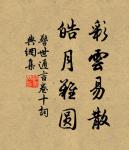 彩雲易散
皓月難圆
警世通言卷十詞
典網集